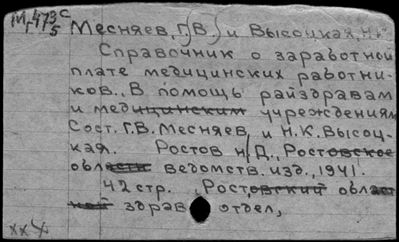 М,473c
5
Месняев, Г.В. и Высоцкая, Н.К.
Справочник о заработной
плате медицинских работни-
ков. В помощь райздравам
и медицинским учреждениям
Сост. Г.В. Месняев и Н.К. Высоц-
кая. Ростов н/Д., Ростовское
област ведомств. изд., 1941.
42 стр. Ростовский област
ной здрав отдел,